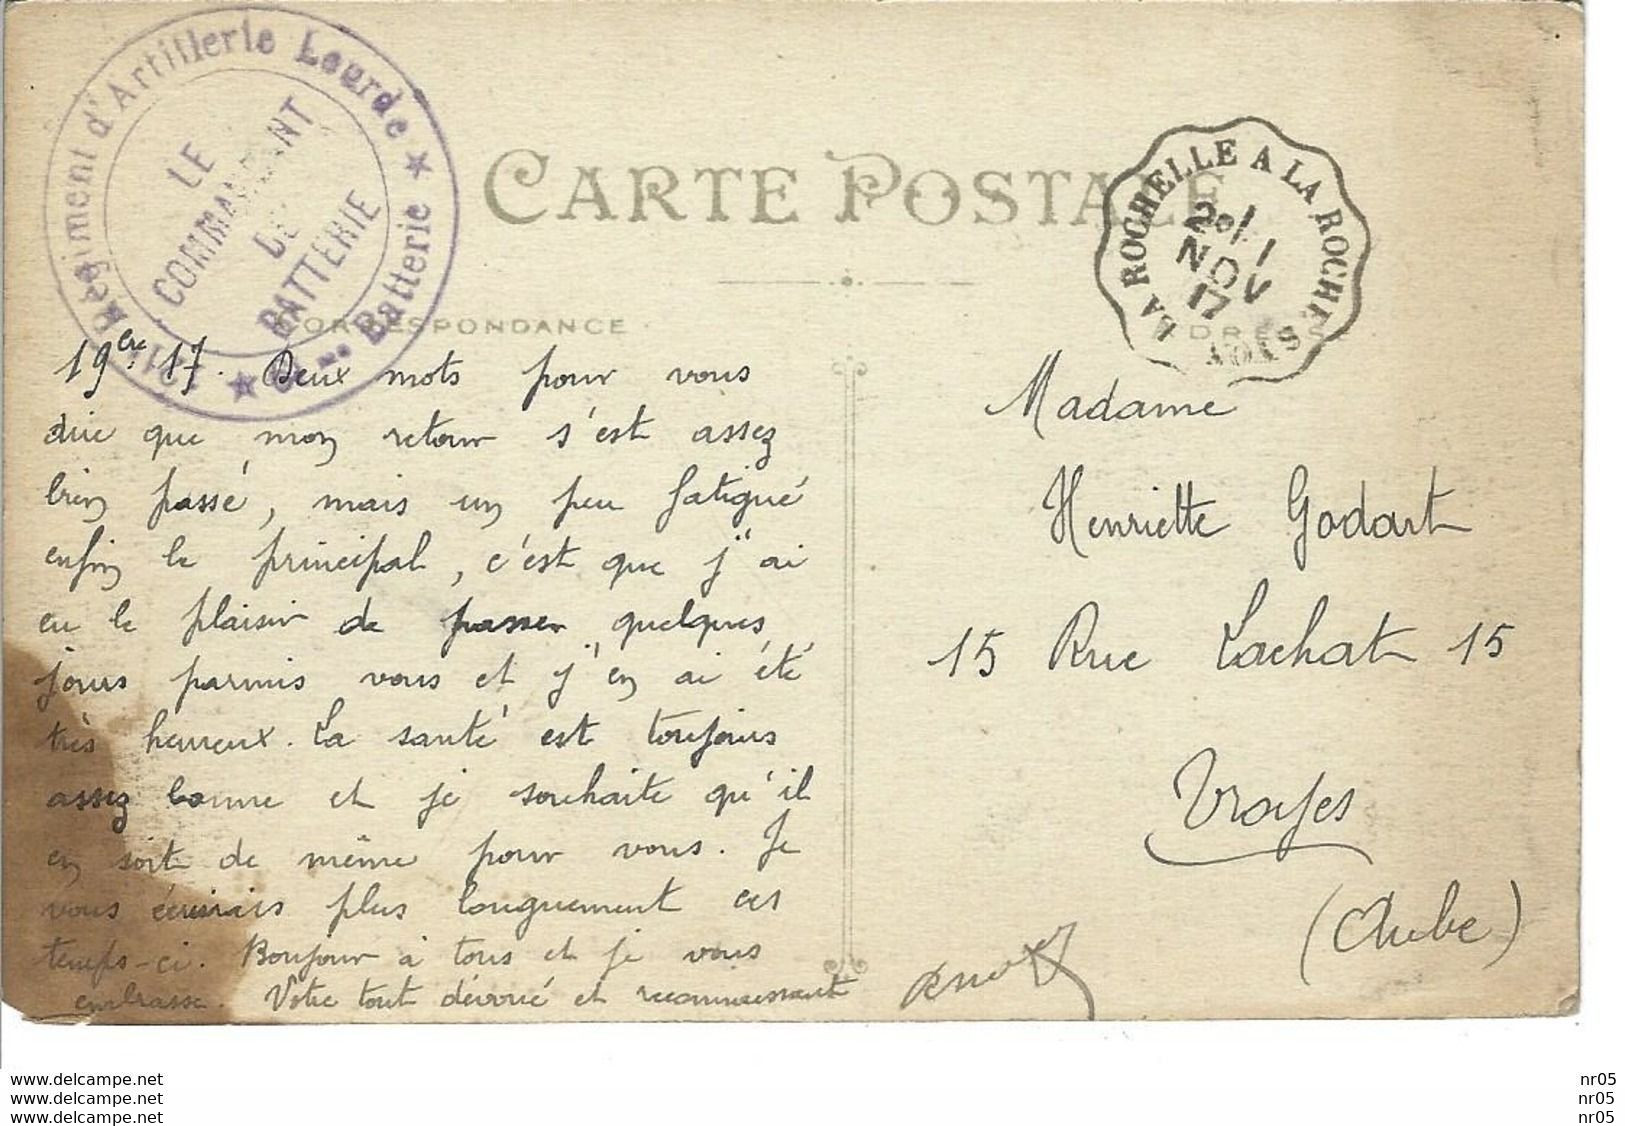 Régiment d'Artillerie Lourde ★
Batterie ★
LE
COMMANDANT
DE
BATTERIE
CARTE POSTALE
LA ROCHELLE A LA ROCHE S YON
NOV
17
CORRESPONDANCE
ADRESSE
17. Deux mots pour vous
dire que mon retour s'est assez
bien passé, mais un peu fatigué
enfin le principal, c'est que j'ai
eu le plaisir de passer quelques
jours parmis vous et j'en ai été
très heureux. La santé est toujours
assez bonne et je souhaite qu'il
en soit de même pour vous. Je
vous écrirais plus longuement ces
temps-ci. Bonjour à tous et je vous
embrasse. Votre tout dévoué et reconnaissant
Madame
Henriette Godart
15 Rue Lachat 15
Troyes
(Aube)
www.delcampe.net
www.delcampe.net
www.delcampe.net
nr05
nr05
nr05